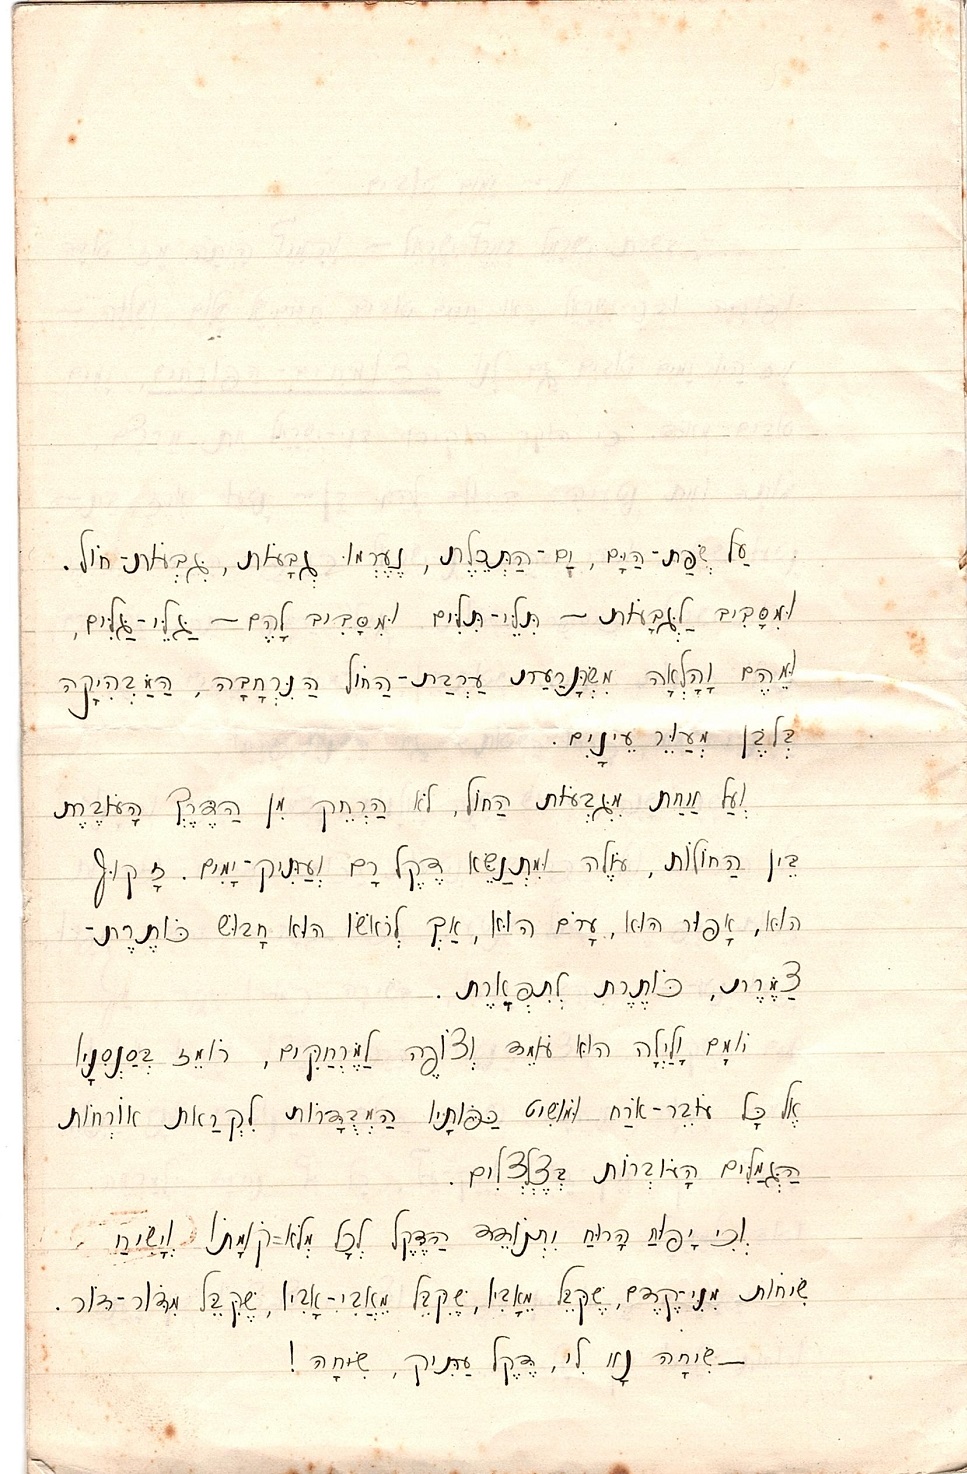 עַל שְׂפַת-הַיָּם, יָם-הַתְּכֵלֶת, נֶעֶרְמוּ גְבָעוֹת, גִּבְעוֹת-חוֹל.
וּמִסָּבִיב לַגְּבָעוֹת — תִּלֵּי-תִּלִּים וּמִסָּבִיב לָהֶם — גַּלֵּי-גַּלִּים,
וּמֵהֶם וָהָלְאָה מִשְׂתָּרַעַת עַרְבַת-הַחוֹל הַנִּרְחָבָה, הַמַּבְהִיקָה
בְּלֹבֶן מְעַוֵּר עֵינָיִם.
וְעַל אַחַת מִגִּבְעוֹת הַחוֹל, לֹא הַרְחֵק מִן הַדֶּרֶךְ הָעוֹבֶרֶת
בֵּין הַחוֹלוֹת, עוֹלֶה וּמִתְנַשֵּׂא דֶּקֶל רָם וְעַתִּיק-יָמִים. זָקוּף
הוּא, אָפוּר הוּא, עָרֹם הוּא, אַךְ לְרֹאשׁוֹ הוּא חָבוּשׁ כּוֹתֶרֶת-
צַמֶּרֶת, כּוֹתֶרֶת לְתִפְאָרֶת.
יוֹמָם וָלַיְלָה הוּא עוֹמֵד וְצוֹפֶה לַמֶּרְחַקִּים, רוֹמֵז בְּסַנְסִנָּיו
אֶל כָּל עוֹבֵר-אֹרַח וּמוֹשִׁיט כַּפּוֹתָיו הַמְבֻדָּרוֹת לִקְרַאת אוֹרְחוֹת
הַגְּמַלִּים הָעוֹבְרוֹת בְּצֶלְצְלִים.
וְכִי יָפוּחַ הָרוּחַ יִתְנוֹדֵד הַדֶּקֶל לְכָל מְלֹא-קוֹמָתוֹ וְיָשִׂיחַ
שִׂיחוֹת מִנֵּי-קֶדֶם, שֶׁקִּבֵּל מֵאָבִיו, שֶׁקִּבֵּל מֵאֲבִי-אָבִיו, שֶׁקִּבֵּל מִדּוֹר-דּוֹר.
— שִׂיחָה נָא לִי, דֶּקֶל עַתִּיק, שִׂיחָה!